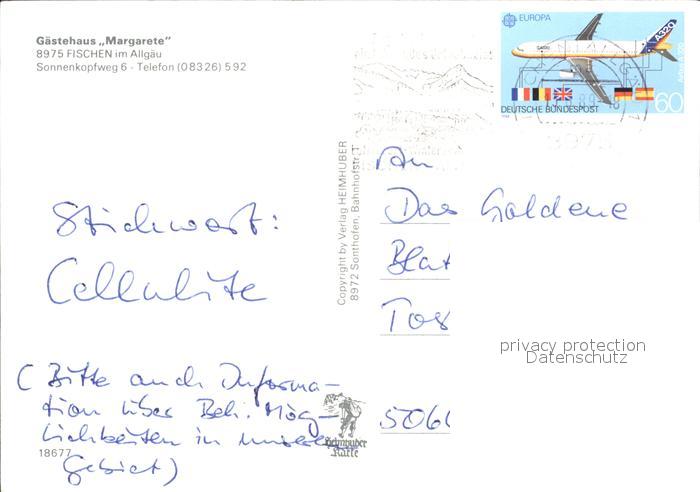 Gästehaus „Margarete"
8975 FISCHEN im Allgäu
Sonnenkopfweg 6 - Telefon (08326) 592
EUROPA
A320
Airbus A320
DEUTSCHE BUNDESPOST
60
Copyright by Verlag HEIMHUBER
8972 Sonthofen, Bahnhofstr. 1
An
Das Goldene
Blat
Tos
5060
privacy protection
Datenschutz
Stichwort:
Cellulite
(Bitte auch Informa-
tion über Beh. Mög-
lichkeiten in unserem
Gebiet)
Heimhuber
Karte
18677